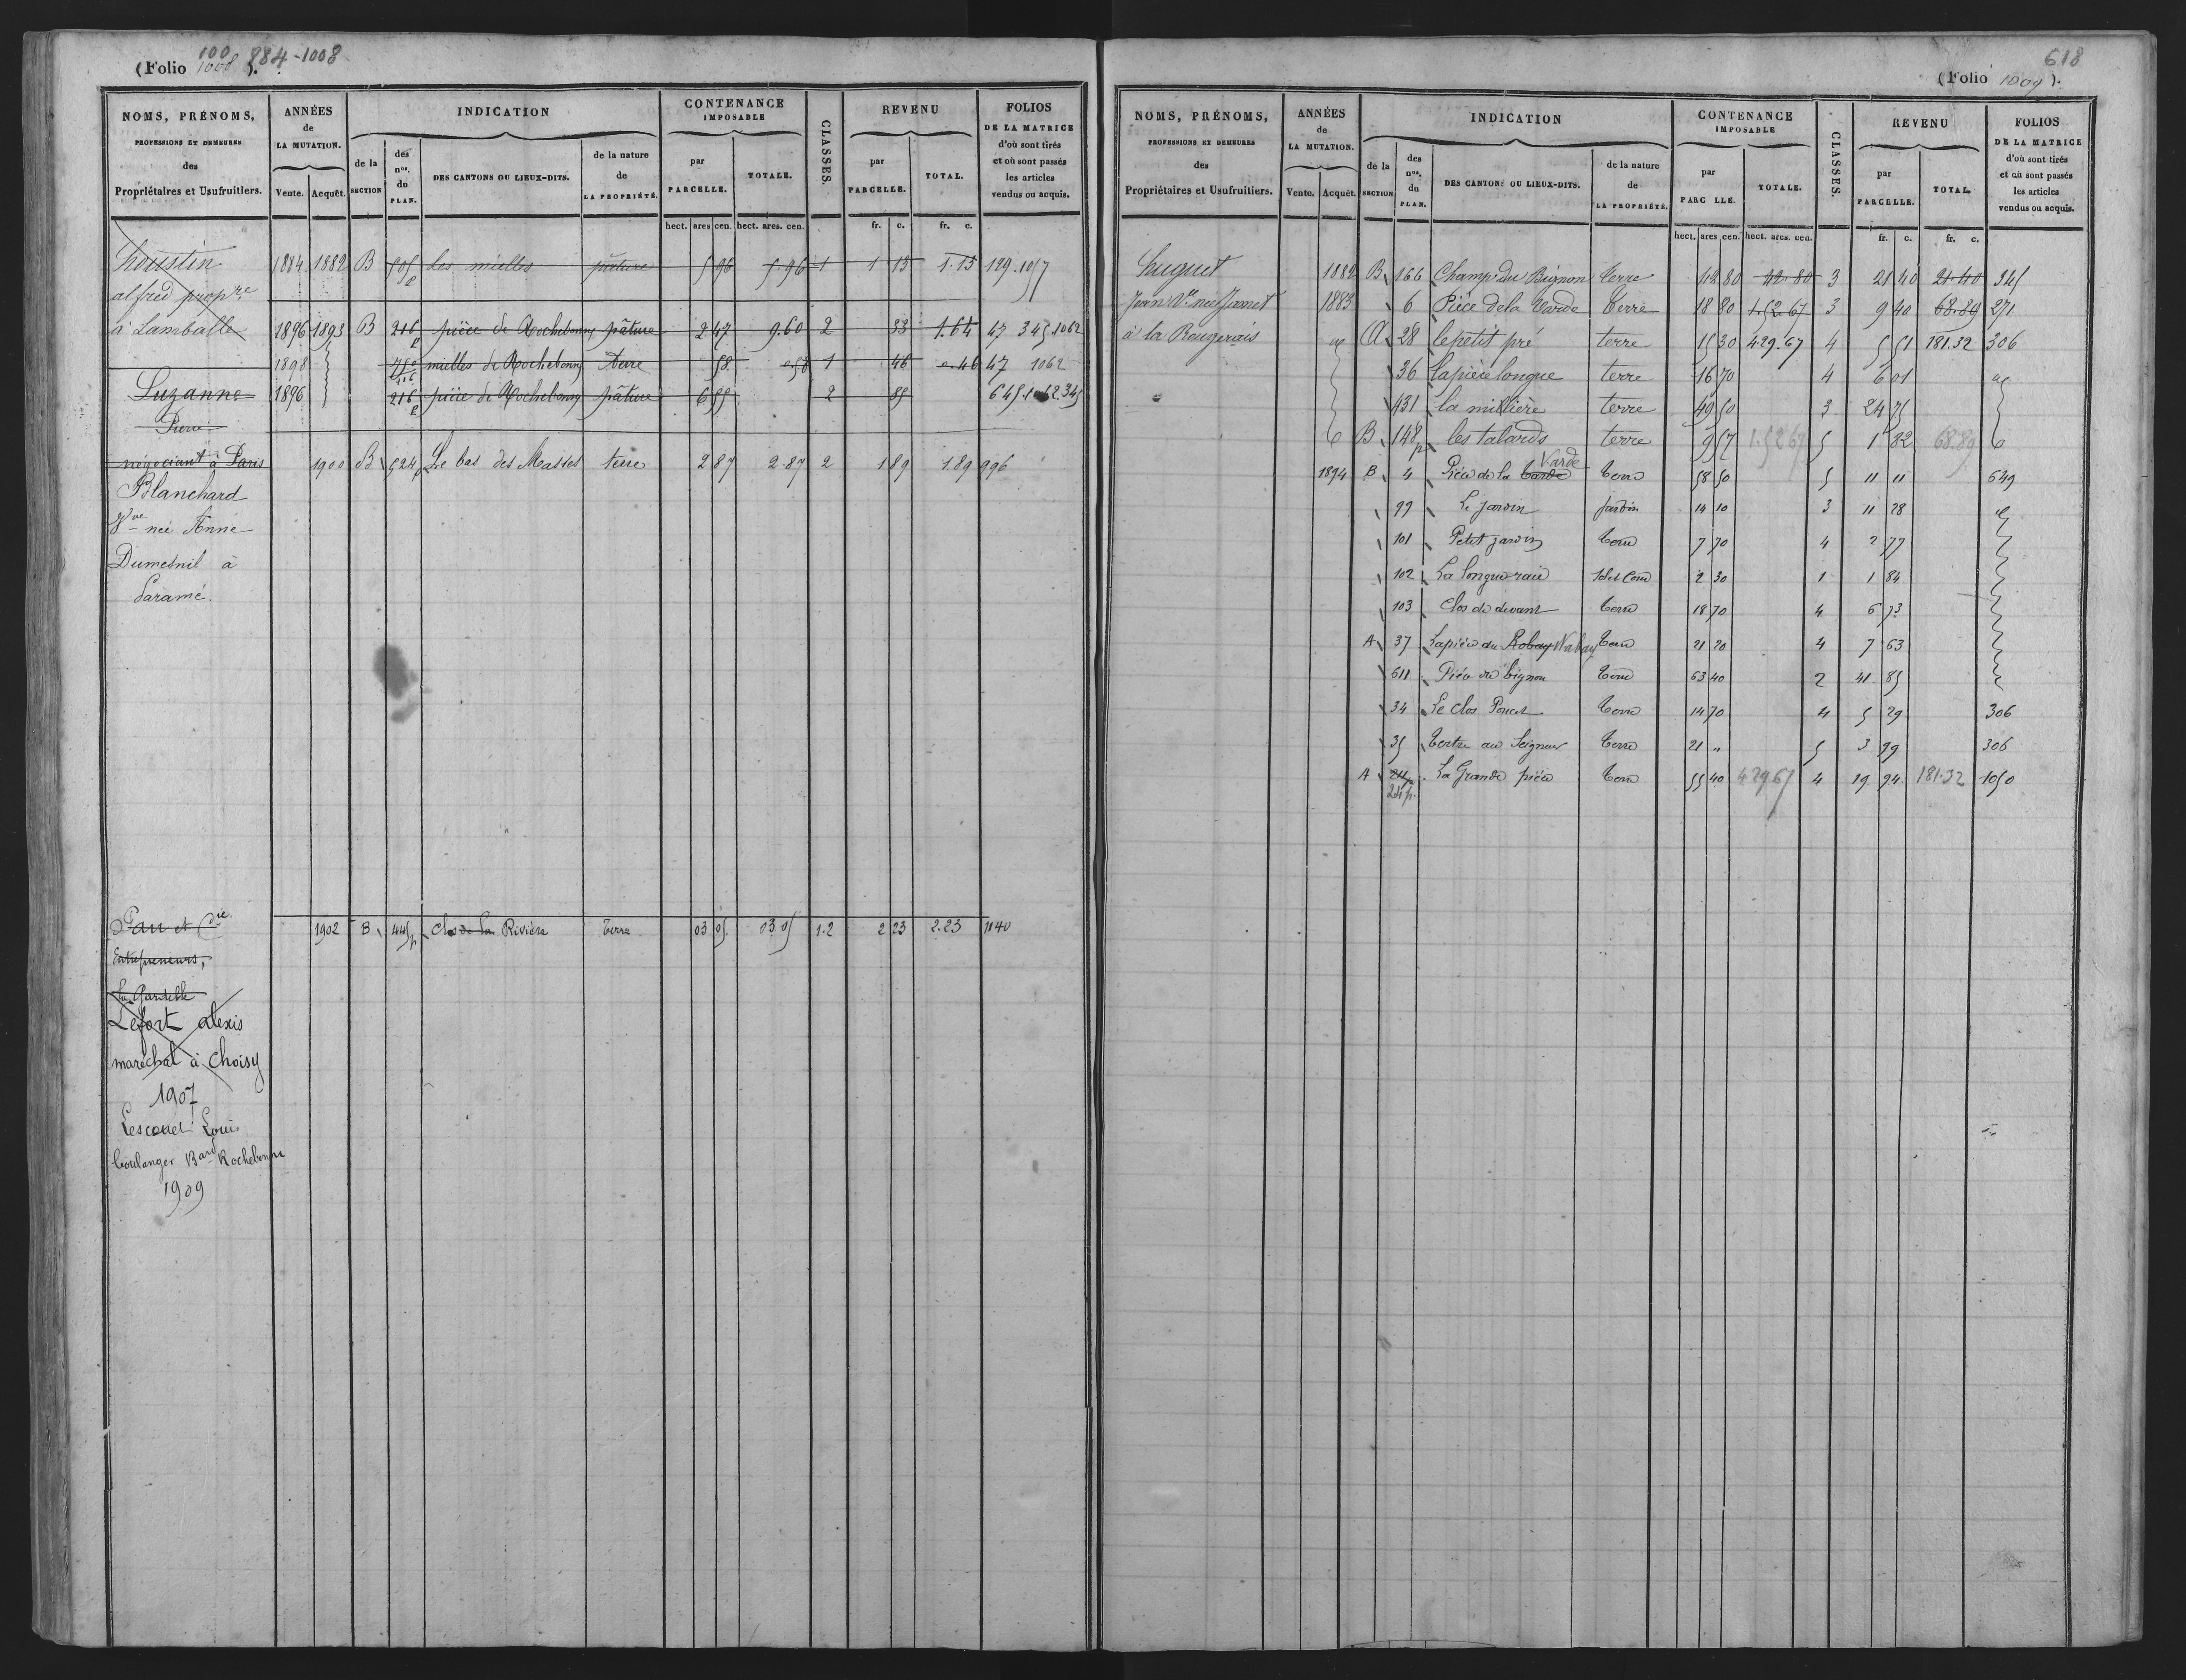 (Folio 1008). 884-1008
NOMS, PRÉNOMS, PROFESSIONS ET DEMEURES des Propriétaires et Usufruitiers. ANNÉES de LA MUTATION. Vente. Acquêt. INDICATION de la SECTION des nos. du PLAN. DES CANTONS OU LIEUX-DITS. de la nature de LA PROPRIÉTÉ. CONTENANCE IMPOSABLE par PARCELLE. TOTALE. CLASSES. REVENU par PARCELLE. TOTAL. FOLIOS DE LA MATRICE d'où sont tirés et où sont passés les articles vendus ou acquis.
hect. ares cen. hect. ares. cen. fr. c. fr. c.
1884 1882 B 505p les mielles pâture 5 96 5.96 1 1 13 1.13 129.1057
alfred propre
à Lamballe 1896 1893 B 216p pièce de Rochebonne pâture 2 47 9.60 2 33 1.64 47 345 1062
1898 mielles de Rochebonne terre 58 0.58 1 46 0.46 47 1062
Luzanne 1896 216p pièce de Rochebonne pâture 6 55 2 85 645.1062.345
Pierre
négociant à Paris 1900 B 524p Le bas des Masses terre 2 87 2.87 2 1 89 1.89 996
Blanchard
Vve née Anne
Dumesnil à
Paramé.
Pau et Cie 1902 B 445p clos de la Rivière terre 03 05 03 05 1.2 2 23 2.23 1140
Entrepreneurs,
Lefort alexis
maréchal à Choisy
1907
Lescouet Louis
boulanger Bard Rochebonne
1909
618
(Folio 1009).
NOMS, PRÉNOMS, PROFESSIONS ET DEMEURES des Propriétaires et Usufruitiers. ANNÉES de LA MUTATION. Vente. Acquêt. INDICATION de la SECTION des nos. du PLAN. DES CANTONS OU LIEUX-DITS. de la nature de LA PROPRIÉTÉ. CONTENANCE IMPOSABLE par PARCELLE. TOTALE. CLASSES. REVENU par PARCELLE. TOTAL. FOLIOS DE LA MATRICE d'où sont tirés et où sont passés les articles vendus ou acquis.
hect. ares cen. hect. ares. cen. fr. c. fr. c.
huguet 1882 B 166 Champ du Bignon terre 42 80 42.80 3 21 40 21.40 345
Jean Ve née Jamet 1883 6 Pièce de la Varde terre 18 80 1.52.67 3 9 40 68.89 271
à la Rougerais A 28 le petit pré terre 15 30 429.67 4 5 51 181.32 306
36 la pièce longue terre 16 70 4 6 01
431 la millière terre 49 50 3 24 75
B 148p les talards terre 9 57 1.52 67 5 1 82 68.89
1894 B 4 Pièce de la Varde terre 58 50 5 11 11 649
99 Le jardin Jardin 14 10 3 11 28
101 Petit jardin terre 7 70 4 2 77
102 La longue raie 2 30 1 1 84
103 clos de devant terre 18 70 4 6 73
A 37 La pièce du Robay Nabay terre 21 20 4 7 63
611 Pièce du bignon terre 63 40 2 41 85
34 Le clos Poucet terre 14 70 4 5 29 306
35 Tertre au Seigneur terre 21 " 5 3 99 306
A 24p. La Grande pièce terre 55 40 429 67 4 19 94 181.32 1050